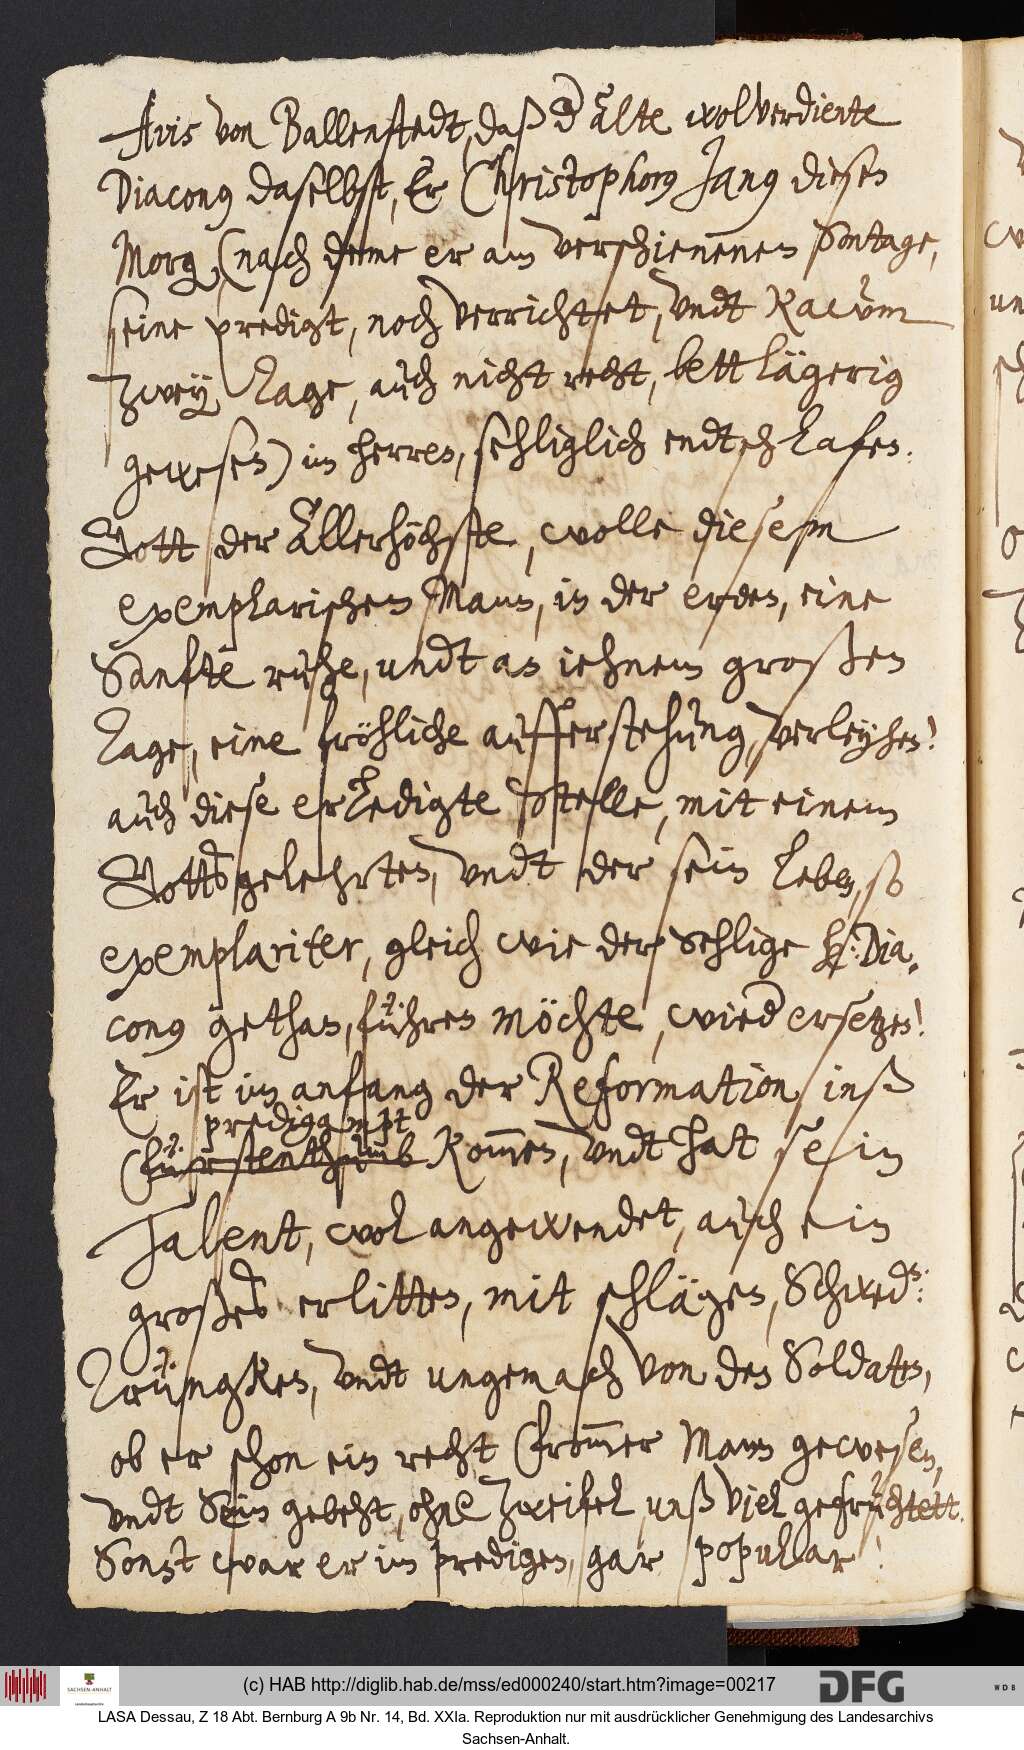 Avis von Ballenstedt, daß d Alte wolverdiente
Diaconus daselbst, Er Christophorus Janus diesen
Morg (nach deme er am verschienenen Sontage,
seine predigt, noch verrichtet, undt Kaum
zwey Tage, auch nicht recht, bettlägerig
gewesen) im herren, sehliglich endtschlafen.
Gott der Allerhöchste, wolle diesem
exemplarischen Mann, in der erden, eine
Sanfte ruhe, undt an iehnem großen
Tage, eine fröhliche aufferstehung, verleyhen!
auch diese erledigte Stelle, mit einem
Gottsgelehrten, undt der sein leben, so
exemplariter, gleich wie der Sehlige H: Dia¬
conus gethan, führen möchte, wied ersetzen!
Er ist im anfang der Reformation, inß
predigampt
(fürstenthumb Kommen, undt hat sein
Talent, wol angewendet, auch ein
großes erlitten, mit schlägen, Schwed:
Trüngken, undt ungemach von den Soldaten,
ob er schon ein recht frommer Mann gewesen,
undt Sein gebeht, ohne Zweifel, unß viel gefruchtett.
Sonst war er im predigen, gar popular!
(c) HAB http://diglib.hab.de/mss/ed000240/start.htm?image=00217
SACHSEN-ANHALT
DFG
WDB
LASA Dessau, Z 18 Abt. Bernburg A 9b Nr. 14, Bd. XXIa. Reproduktion nur mit ausdrücklicher Genehmigung des Landesarchivs
Sachsen-Anhalt.